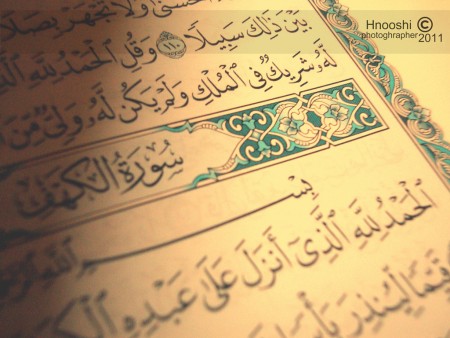 Hnooshi ©
photographer 2011
وَلَا تَجْهَرْ بِصَلَا
بَيْنَ ذَٰلِكَ سَبِيلًا ١١٠ وَقُلِ ٱلْحَمْدُ لِلَّهِ ٱلَّذِ
لَّهُۥ شَرِيكٌ فِى ٱلْمُلْكِ وَلَمْ يَكُن لَّهُۥ وَلِىٌّ مِّنَ
سُورَةُ الكَهْفِ
بِسْمِ ٱللَّهِ
ٱلْحَمْدُ لِلَّهِ ٱلَّذِىٓ أَنزَلَ عَلَىٰ عَبْدِهِ
قَيِّمًا لِّيُنذِرَ